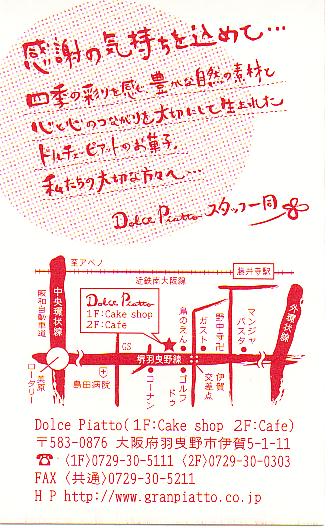 感謝の気持ちを込めて…
四季の彩りを感じ、豊かな自然の素材と
心と心のつながりを大切にして生まれた
ドルチェ・ピアットのお菓子。
私たちの大切な方々へ…
Dolce Piatto スタッフ一同
至アベノ
近鉄南大阪線
藤井寺駅
中央環状線
阪和自動車道
Dolce Piatto
1F:Cake shop
2F:Cafe
鳥のえん
ガスト
野中寺卍
マンジャパスタ
外環状線
GS
堺羽曳野線
美原ロータリー
島田病院
コーナン
ゴルフドゥ
伊賀交差点
Dolce Piatto(1F:Cake shop 2F:Cafe)
〒583-0876 大阪府羽曳野市伊賀5-1-11
☎ 〈1F〉0729-30-5111 〈2F〉0729-30-0303
FAX 〈共通〉0729-30-5211
H P http://www.granpiatto.co.jp